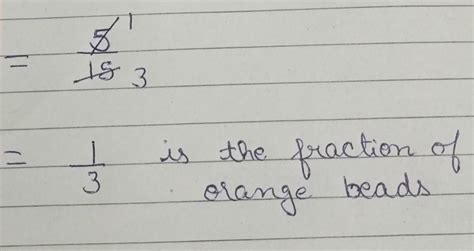 = 5/15 1 3
= 1/3 is the fraction of
orange beads